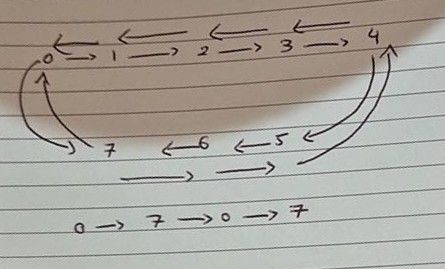 0 → 1 → 2 → 3 → 4
7 ← 6 ← 5
0 → 7 → 0 → 7